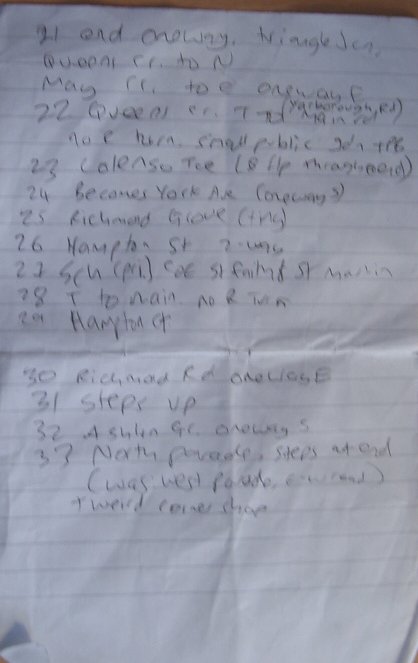 21 end oneway, triangle Jcn,
Queens Cr. to N
May Cr. to E oneway E
22 Queens Cr. T to (Yarborough Rd) Main rd
no R turn. small public gdn + PB
23 Calenso Tce (& flp throughoerd)
24 Becomes York Ave (oneway S)
25 Richmod Grove (
26 Hampton St 2-way
27 Sch (pri) CoE St Faith & St Martin
28 T to main. no R Turn
29 Hampton
30 Richmod Rd oneway E
31 Steps up
32 Ashlin Gr. oneway S
33 North Parade, steps at end
(was west parade,
+ weird corner shop